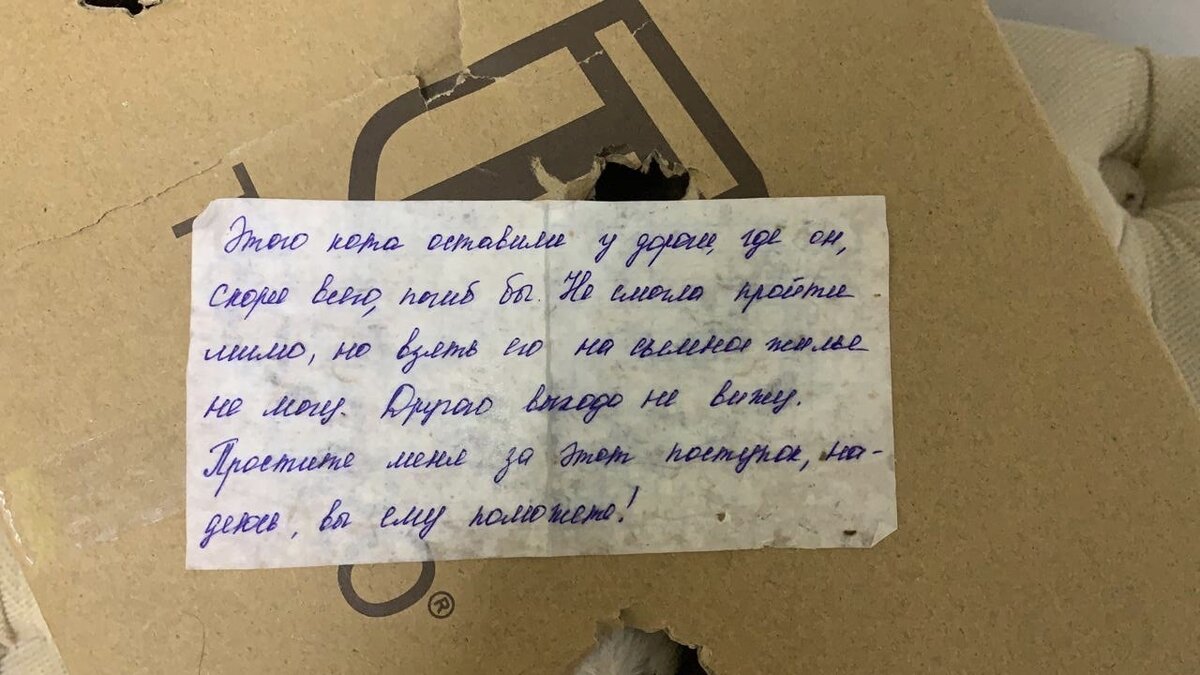 Этого кота оставили у дороги, где он,
скорее всего, погиб бы. Не смогла пройти
мимо, но взять его на съемное жилье
не могу. Другого выхода не вижу.
Простите меня за этот поступок, на-
деюсь, вы ему поможете!
®